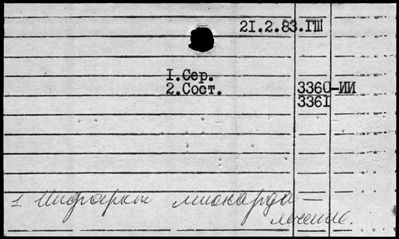 21.2.83.ГШ
1.Сер.
2.Сост. 3360-ИИ
3361
1 Инфаркт миокарда —
лечение.